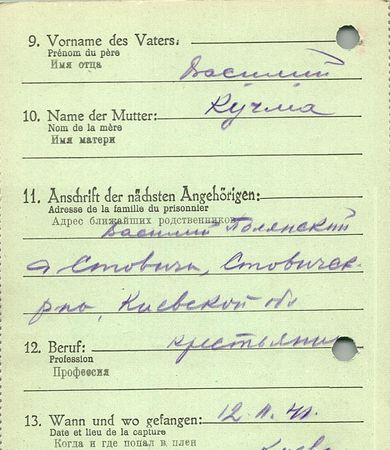 9. Vorname des Vaters:
Prénom du père
Имя отца
Василий
10. Name der Mutter:
Nom de la mère
Имя матери
Кучма
11. Anschrift der nächsten Angehörigen:
Adresse de la famille du prisonnier
Адрес ближайших родственников
Василий Полянский
Стовичи, Стовичск
Киевской обл
12. Beruf:
Profession
Профессия
крестьянин
13. Wann und wo gefangen:
Date et lieu de la capture
Когда и где попал в плен